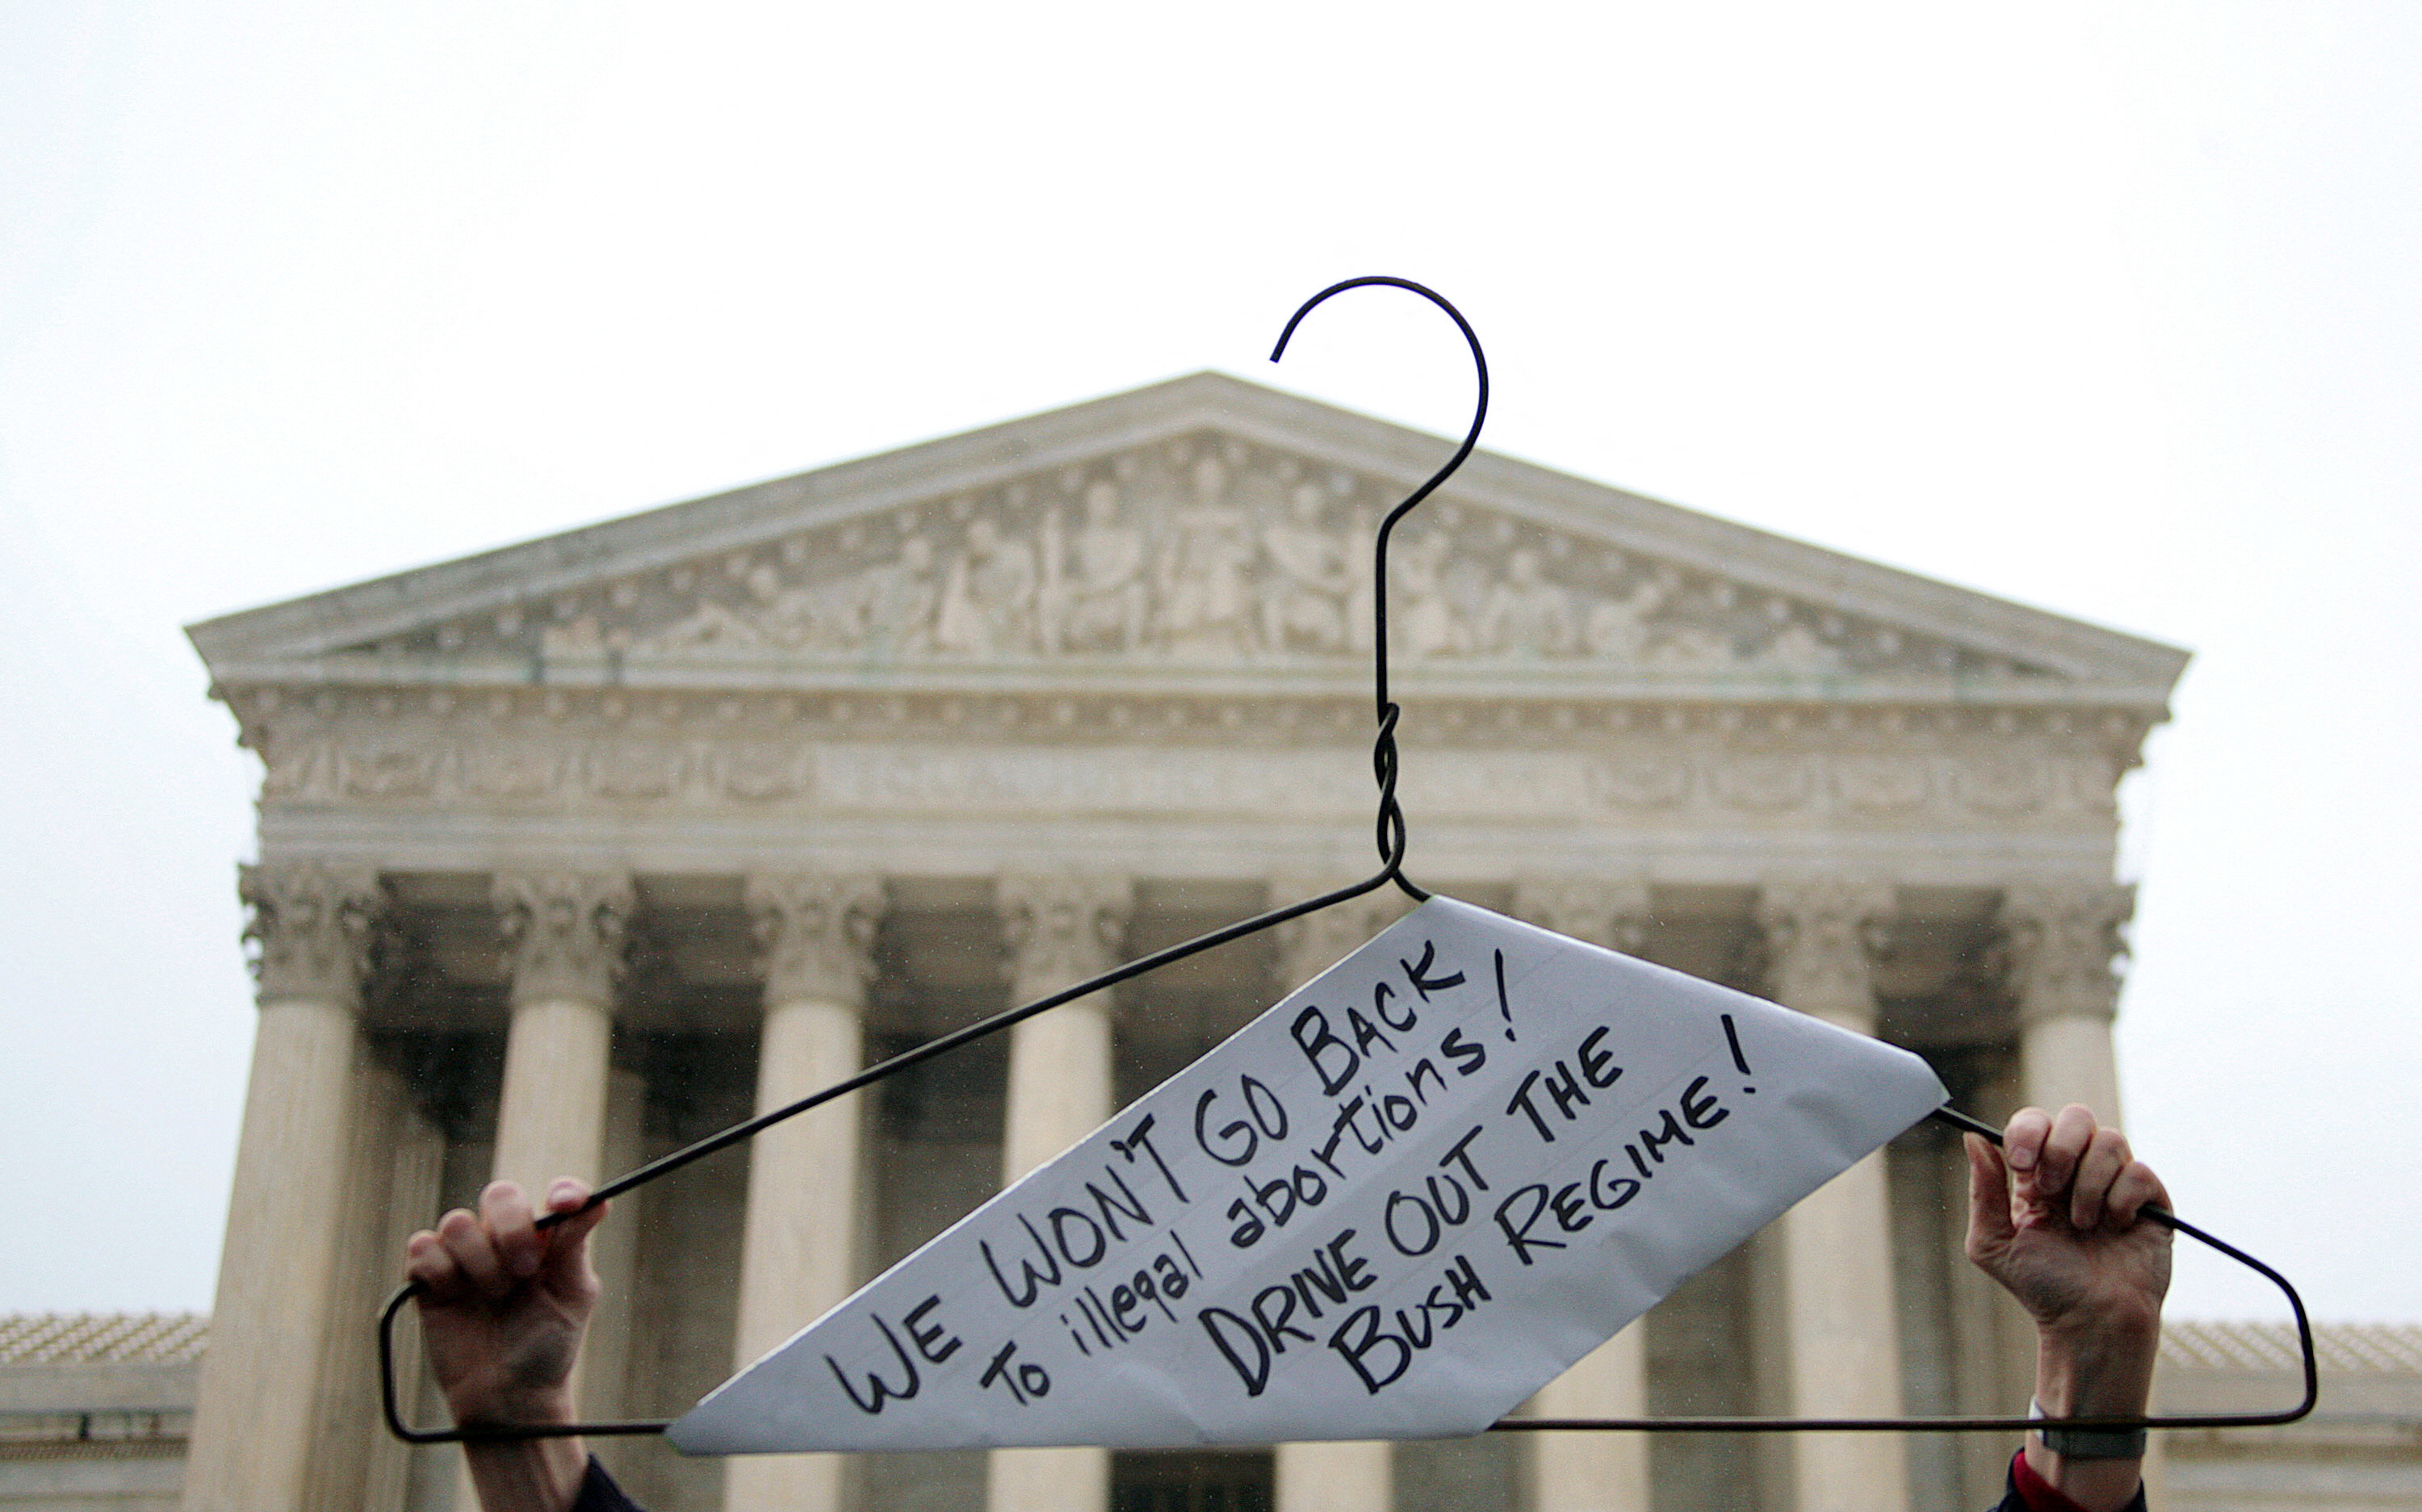 WE WON'T GO BACK
To illegal abortions!
DRIVE OUT THE
BUSH REGIME!